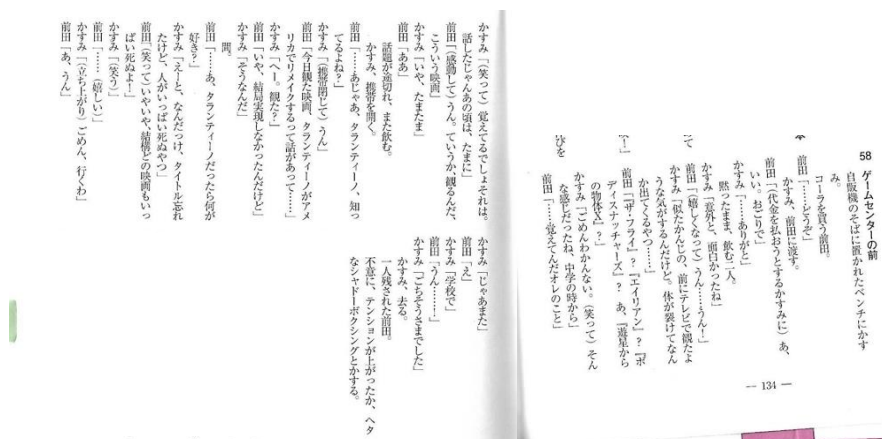 58 ゲームセンターの前
自販機のそばに置かれたベンチにかす
み。
コーラを買う前田。
前田「……どうぞ」
かすみ、前田に渡す。
前田「(代金を払おうとするかすみに)あ、
いい。おごりで」
かすみ「……ありがと」
黙ったまま、飲む二人。
かすみ「意外と、面白かったね」
前田「(嬉しくなって)うん……うん!」
かすみ「似たかんじの、前にテレビで観たよ
うな気がするんだけど。体が裂けてなん
か出てくるやつ……」
前田「『ザ・フライ』?『エイリアン』?『ボ
ディスナッチャーズ』? あ、『遊星から
の物体X』?」
かすみ「ごめんわかんない。(笑って)そん
な感じだったね、中学の時から」
前田「……覚えてんだオレのこと」
て
ー!」
びを
— 134 —
かすみ「(笑って)覚えてるでしょそれは。
話したじゃんあの頃は、たまに」
前田「(感動して)うん。ていうか、観るんだ、
こういう映画」
かすみ「いや、たまたま」
前田「ああ」
話題が途切れ、また飲む。
かすみ、携帯を開く。
前田「……あじゃあ、タランティーノ、知っ
てるよね?」
かすみ「(携帯閉じて)うん」
前田「今日観た映画、タランティーノがアメ
リカでリメイクするって話があって……」
かすみ「へー。観た?」
前田「いや、結局実現しなかったんだけど」
かすみ「そうなんだ」
間。
前田「……あ、タランティーノだったら何が
好き?」
かすみ「えーと、なんだっけ、タイトル忘れ
たけど、人がいっぱい死ぬやつ」
前田「(笑って)いやいや、結構どの映画もいっ
ぱい死ぬよー」
かすみ「(笑う)」
前田「……(嬉しい)」
かすみ「(立ち上がり)ごめん、行くわ」
前田「あ、うん」
かすみ「じゃあまた」
前田「え」
かすみ「学校で」
前田「うん……!」
かすみ「ごちそうさまでした」
かすみ、去る。
一人残された前田。
不意に、テンションが上がったか、ヘタ
なシャドーボクシングとかする。